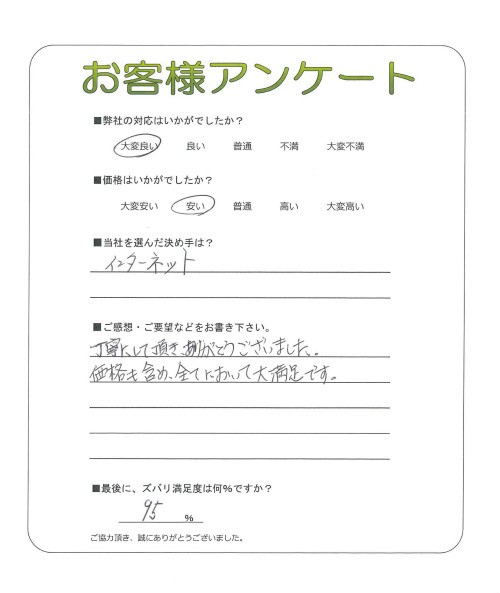 お客様アンケート
■弊社の対応はいかがでしたか？
大変良い 良い 普通 不満 大変不満
■価格はいかがでしたか？
大変安い 安い 普通 高い 大変高い
■当社を選んだ決め手は？
インターネット
■ご感想・ご要望などをお書き下さい。
丁寧にして頂き、ありがとうございました。
価格も含め、全てにおいて大満足です。
■最後に、ズバリ満足度は何％ですか？
95 ％
ご協力頂き、誠にありがとうございました。